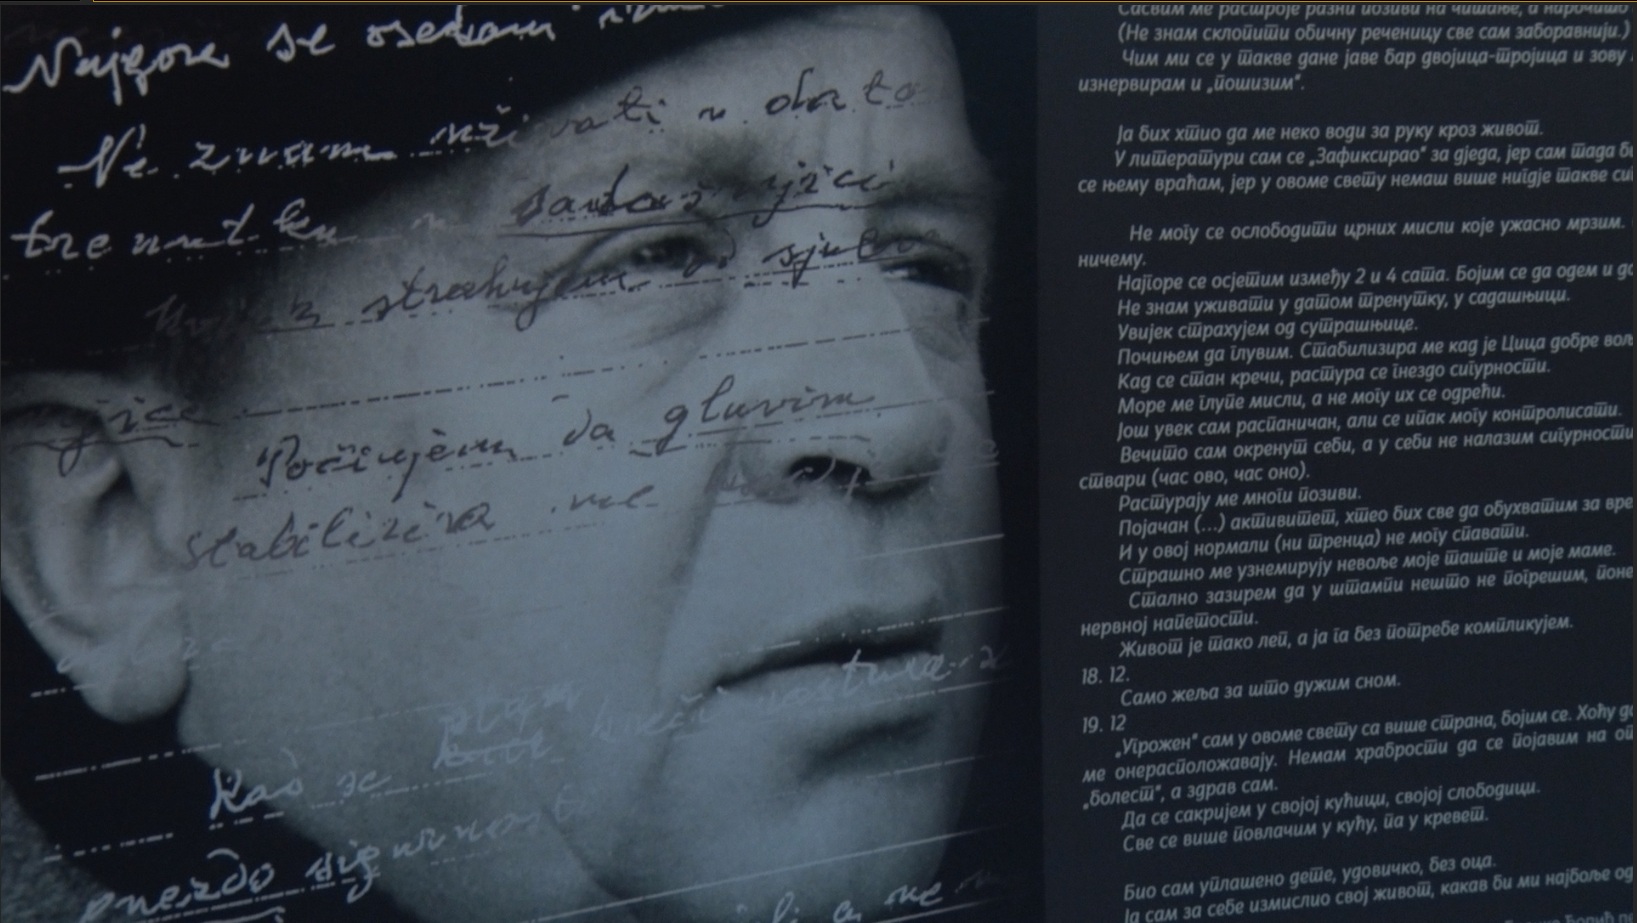 Najgore se osećam
Ne znam uživati u datom
trenutku u sadašnjici
Uvijek strahujem od sjutra
šnjice
Počinjem da gluvim
stabilizira me kad je Cica
dobre
Kad se stan kreči rastura se
gnezdo sigurnosti
Сасвим ме растроје разни позиви на читање, а нарочито
(Не знам склопити обичну реченицу све сам заборавнији.)
Чим ми се у такве дане јаве бар двојица-тројица и зову
изнервирам и „пошизим“.
Ја бих хтио да ме неко води за руку кроз живот.
У литератури сам се „Зафиксирао“ за дједа, јер сам тада
се њему враћам, јер у овоме свету немаш више нигдје такве
Не могу се ослободити црних мисли које ужасно мрзим.
ничему.
Најгоре се осјетим између 2 и 4 сата. Бојим се да одем и
Не знам уживати у датом тренутку, у садашњици.
Увијек страхујем од сутрашњице.
Почињем да глувим. Стабилизира ме кад је Цица добре
Кад се стан кречи, растура се гнездо сигурности.
Море ме глупе мисли, а не могу их се одрећи.
Још увек сам распаничан, али се ипак могу контролисати.
Вечито сам окренут себи, а у себи не налазим сигурности
ствари (час ово, час оно).
Растурају ме многи позиви.
Појачан (...) активитет, хтео бих све да обухватим за
И у овој нормали (ни тренца) не могу спавати.
Страшно ме узнемирују невоље моје таште и моје маме.
Стално зазирем да у штампи нешто не погрешим,
нервној напетости.
Живот је тако леп, а ја га без потребе компликујем.
18. 12.
Само жеља за што дужим сном.
19. 12
„Угрожен“ сам у овоме свету са више страна, бојим се. Хоћу
ме онерасположавају. Немам храбрости да се појавим на
„болест“, а здрав сам.
Да се сакријем у својој кућици, својој слободици.
Све се више повлачим у кућу, па у кревет.
Био сам уплашено дете, удовичко, без оца.
Ја сам за себе измислио свој живот, какав би ми најбоље